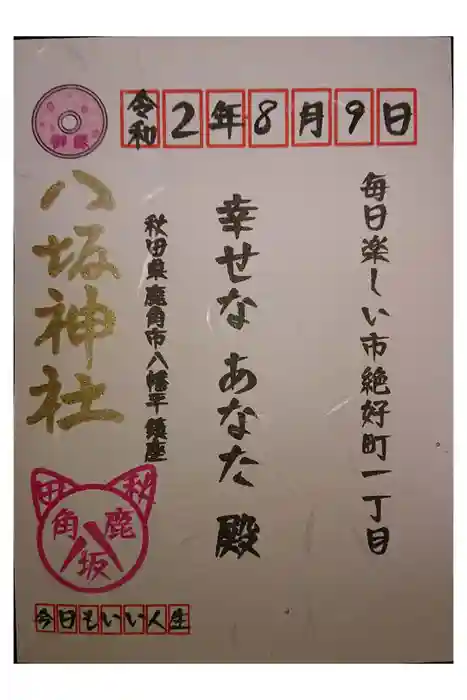 令和2年8月9日
毎日楽しい市絶好町一丁目
幸せな あなた 殿
秋田県鹿角市八幡平 鎮座
八坂神社
秋田
鹿角
八坂
今日もいい人生